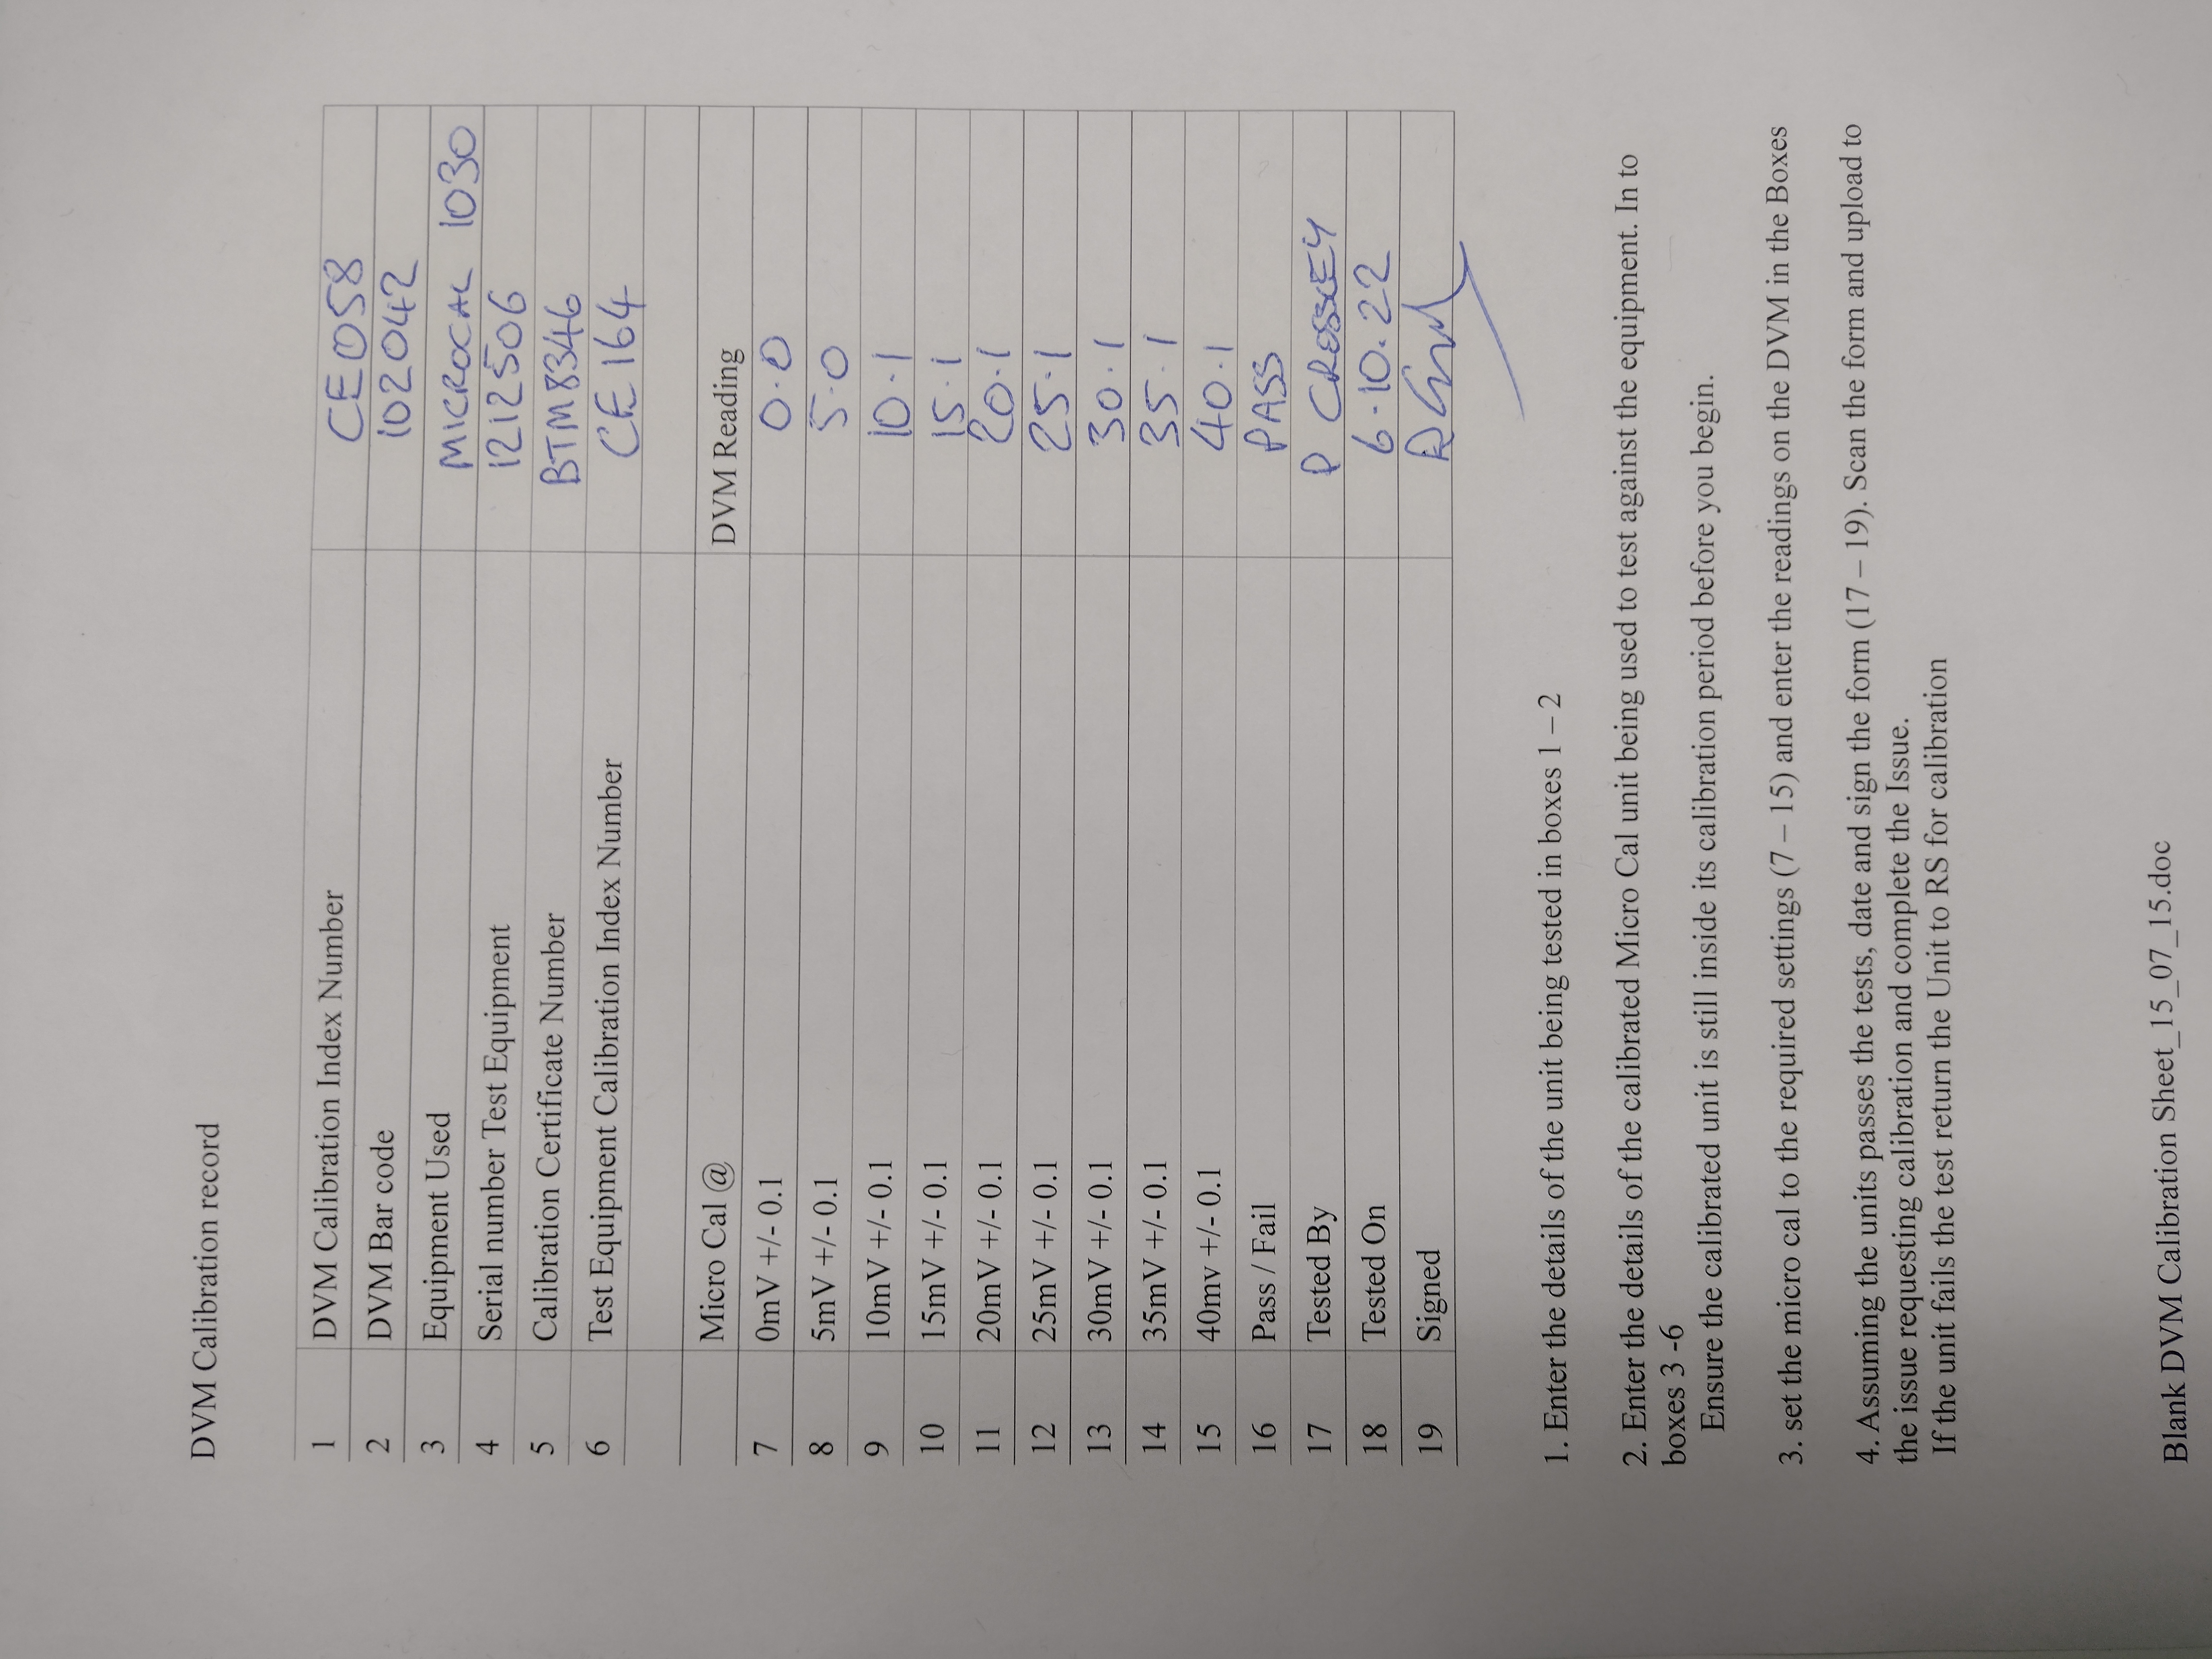 DVM Calibration record
1 DVM Calibration Index Number CE0058
2 DVM Bar code 102042
3 Equipment Used MICROCAL 1030
4 Serial number Test Equipment 1212506
5 Calibration Certificate Number BTM8346
6 Test Equipment Calibration Index Number CE164
Micro Cal @ DVM Reading
7 0mV +/- 0.1 0.0
8 5mV +/- 0.1 5.0
9 10mV +/- 0.1 10.1
10 15mV +/- 0.1 15.1
11 20mV +/- 0.1 20.1
12 25mV +/- 0.1 25.1
13 30mV +/- 0.1 30.1
14 35mV +/- 0.1 35.1
15 40mv +/- 0.1 40.1
16 Pass / Fail PASS
17 Tested By P CROSSLEY
18 Tested On 6.10.22
19 Signed
1. Enter the details of the unit being tested in boxes 1 – 2
2. Enter the details of the calibrated Micro Cal unit being used to test against the equipment. In to
boxes 3 -6
Ensure the calibrated unit is still inside its calibration period before you begin.
3. set the micro cal to the required settings (7 – 15) and enter the readings on the DVM in the Boxes
4. Assuming the units passes the tests, date and sign the form (17 – 19). Scan the form and upload to
the issue requesting calibration and complete the Issue.
If the unit fails the test return the Unit to RS for calibration
Blank DVM Calibration Sheet_15_07_15.doc